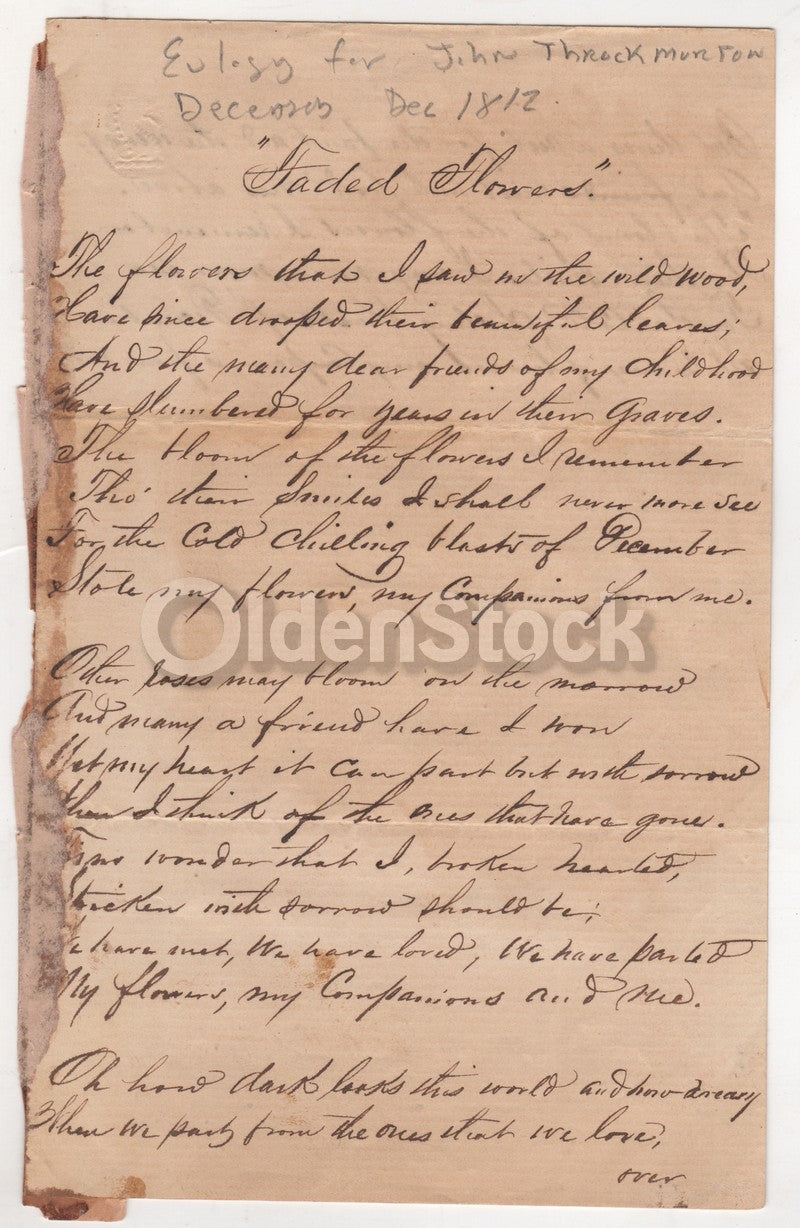 Eulogy for John Throckmorton
December Dec 1812
"Faded Flowers".
The flowers that I saw in the wild wood,
Have since drooped their beautiful leaves;
And the many dear friends of my childhood
Have slumbered for years in their graves.
The bloom of the flowers I remember
Tho' their smiles I shall never more see
For the cold chilling blasts of December
Stole my flowers, my companions from me.
OldenStock
Other roses may bloom on the morrow
And many a friend have I won
Yet my heart it can part but with sorrow
When I think of the ones that have gone.
'Tis no wonder that I, broken hearted,
Stricken with sorrow should be;
We have met, we have loved, we have parted
My flowers, my companions and me.
Oh how dark looks this world and how dreary
When we part from the ones that we love,
over